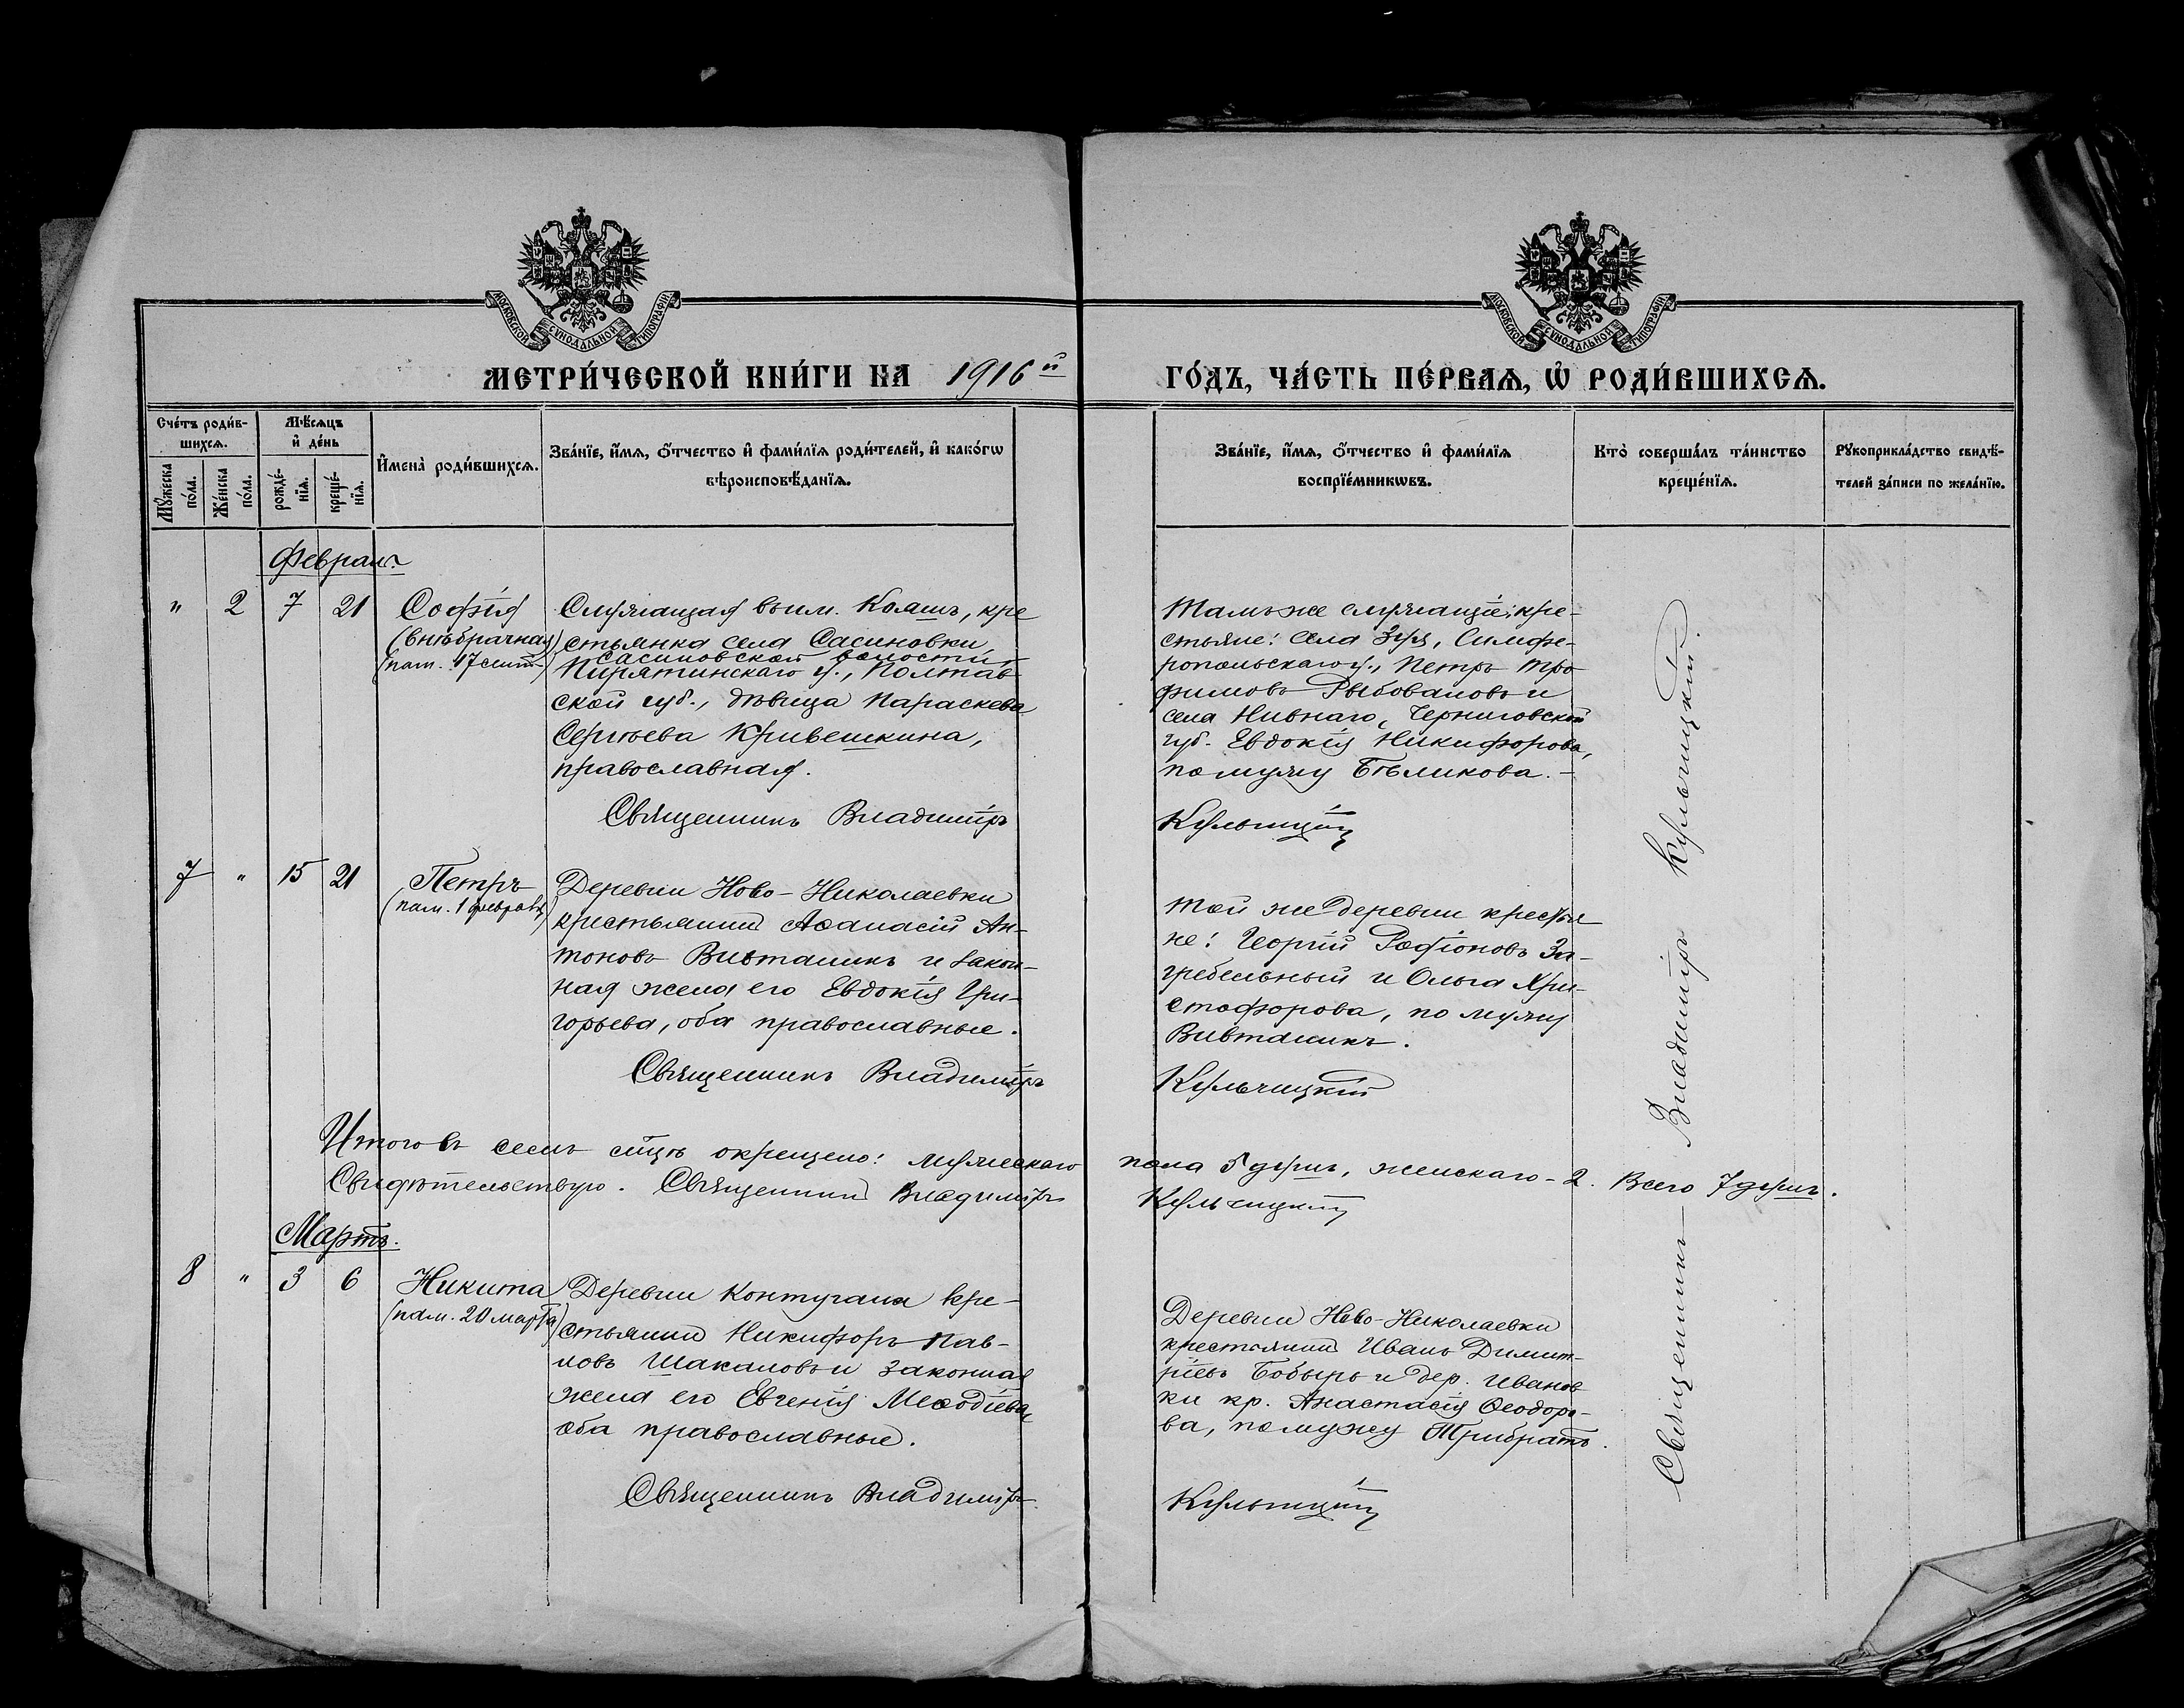 МОСКОВСКОЙ СѴНОДАЛЬНОЙ ТИПОГРАФІИ
МОСКОВСКОЙ СѴНОДАЛЬНОЙ ТИПОГРАФІИ
МЕТРИ́ЧЕСКОЙ КНИ́ГИ НА 1916й ГО́ДЪ, ЧА́СТЬ ПЕ́РВАѦ, Ѡ РОДИ́ВШИХСѦ.
Сче́тъ роди́в-
шихсѧ.
Мꙋ́жеска
по́ла.
Же́нска
по́ла.
Мѣ́сѧцъ
и҆ де́нь
рожде́-
нїѧ.
креще́-
нїѧ.
И҆мена̀ роди́вшихсѧ.
Зва́нїе, и҆́мѧ, ѻ҆́тчество и҆ фами́лїѧ роди́телей, и҆ како́гѡ
вѣроисповѣ́данїѧ.
Зва́нїе, и҆́мѧ, ѻ҆́тчество и҆ фами́лїѧ
воспрїе́мникѡвъ.
Кто̀ соверша́лъ та́инство
креще́нїѧ.
Рꙋкоприкла́дство свидѣ́-
телей за́писи по жела́нїю.
Февраль
" 2 7 21
Софія
(внѣбрачная)
(пам. 17 сент.)
Служащая в им. Кояшъ, кре
стьянка села Сасиновки,
Сасиновской волости,
Пирятинскаго у., Полтав
ской губ., дѣвица Параскева
Сергѣева Кривешкина,
православная.
Священникъ Владиміръ
Тамъ же служащіе: кре-
стьяне: села Зуя, Симфе-
ропольскаго у., Петръ Тро
фимовъ Рыбоваловъ и
села Нивнаго, Черниговской
губ. Евдокія Никифорова,
по мужу Бѣликова. –
Кульчицкій
7 " 15 21
Петръ
(пам. 1 февраля)
Деревни Ново-Николаевки
крестьянинъ Аѳанасій Ан-
тоновъ Вивташикъ и закон-
ная жена его Евдокія Гри-
горьева, оба православные.
Священникъ Владиміръ
Той же деревни крестья
не: Георгій Родіоновъ За-
гребельный и Ольга Хри-
стофорова, по мужу
Вивташикъ.
Кульчицкій
Итого въ семъ мцѣ окрещено: мужескаго пола 5 душъ, женскаго – 2. Всего 7 душъ.
Свидѣтельствую. Священникъ Владиміръ Кульчицкій
Мартъ.
8 " 3 6
Никита
(пам. 20 марта)
Деревни Контугана кре-
стьянинъ Никифоръ Пав-
ловъ Шакаловъ и законная
жена его Евгенія Меѳодіева,
оба православные.
Священникъ Владиміръ
Деревни Ново-Николаевки
крестьянинъ Иванъ Димит-
ріевъ Бобырь и дер. Иванов
ки кр. Анастасія Ѳеодоро-
ва, по мужу Трибратъ.
Кульчицкій
Священникъ – Владиміръ Кульчицкій.